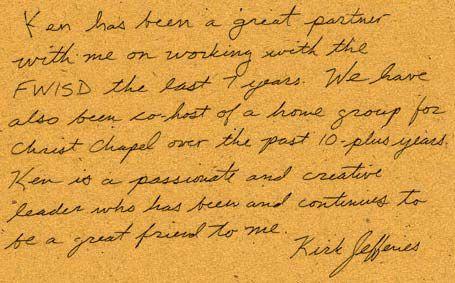 Ken has been a great partner
with me on working with the
FWISD the last 7 years. We have
also been co-host of a home group for
Christ Chapel over the past 10-plus years.
Ken is a passionate and creative
leader who has been and continues to
be a great friend to me.
Kirk Jefferies